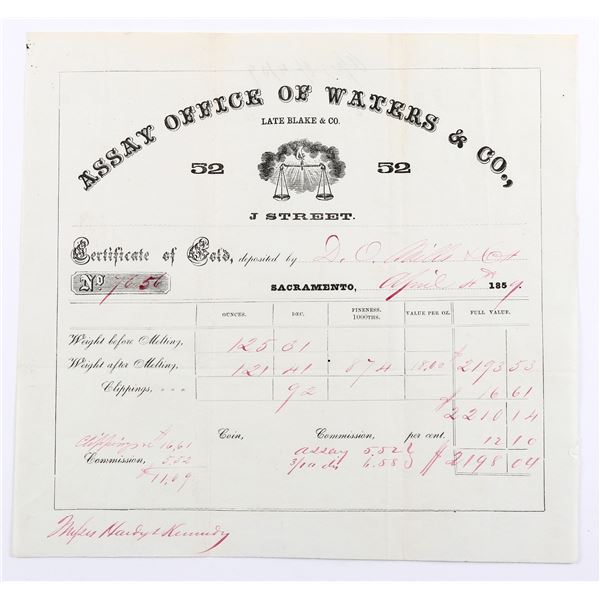 ASSAY OFFICE OF WATERS & CO.,
LATE BLAKE & CO.
52 52
J STREET.
Certificate of Gold, deposited by D. O. Mills & Co
No 7656 SACRAMENTO, April 4th 1859.
OUNCES. DEC. FINENESS. 1000THS. VALUE PER OZ. FULL VALUE.
Weight before Melting, 125 31
Weight after Melting, 121 41 874 18.06 $2193 53
Clippings, 92 $ 16 61
2210 14
Clippings $16,61 Coin, Commission, per cent. 12 10
Commission, 5,52 assay 5.52 $2198 04
$11,09 3/10 dis 6.58
Messrs Hardy & Kennedy